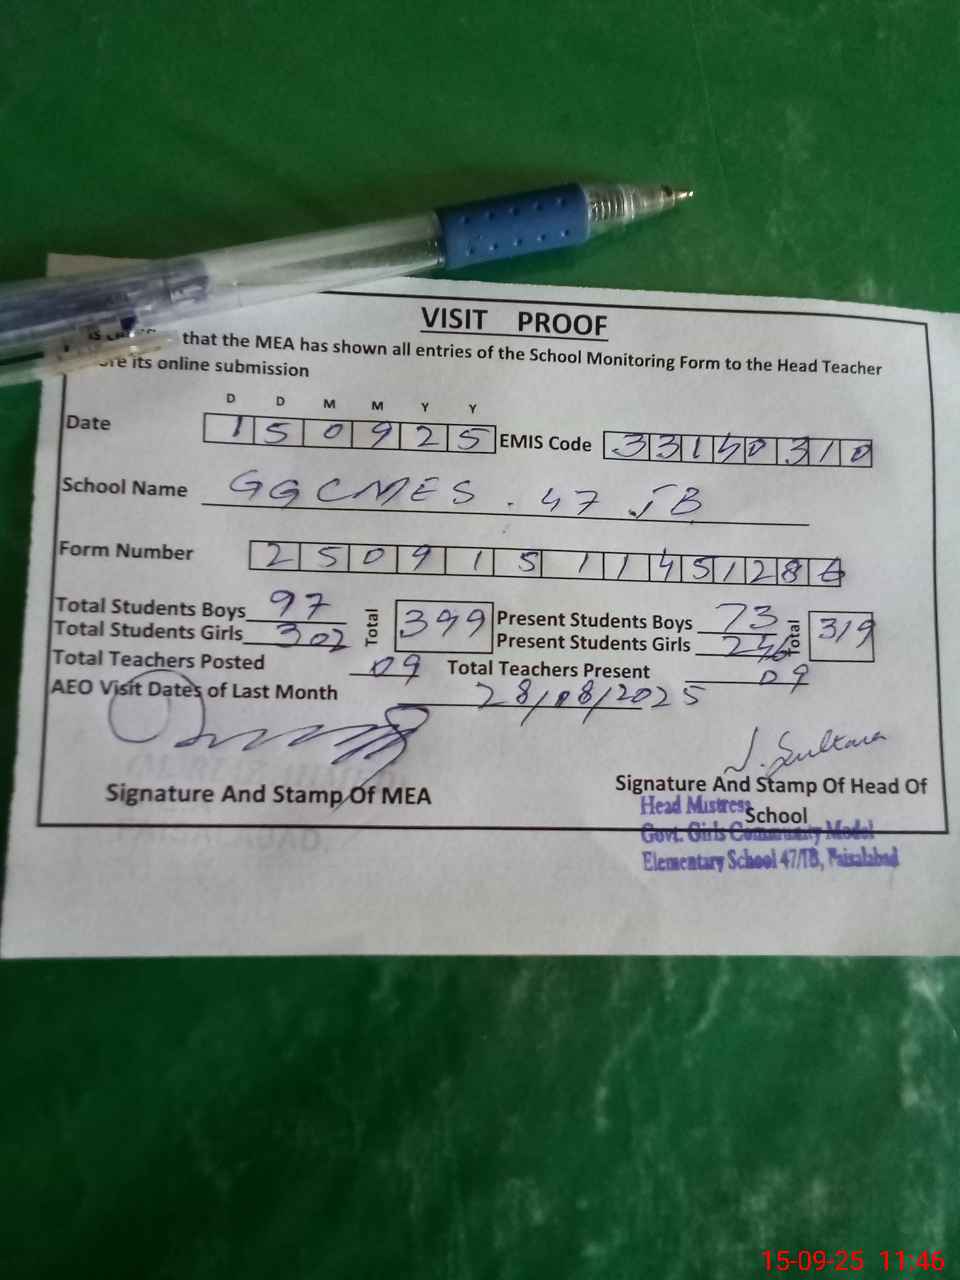 VISIT PROOF
that the MEA has shown all entries of the School Monitoring Form to the Head Teacher
its online submission
D D M M Y Y
Date 1 5 0 9 2 5 EMIS Code 3 3 1 4 0 3 1 0
School Name GGCMES . 47 JB
Form Number 2 5 0 9 1 5 1 1 4 5 1 2 8 6
Total Students Boys 97 Total 399 Present Students Boys 73 Total 319
Total Students Girls 302 Present Students Girls 246
Total Teachers Posted 09 Total Teachers Present 09
AEO Visit Dates of Last Month 28/08/2025
J. Sultana
Signature And Stamp Of MEA Signature And Stamp Of Head Of School
Head Mistress
Govt. Girls Community Model
Elementary School 47/JB, Faisalabad
15-09-25 11:46